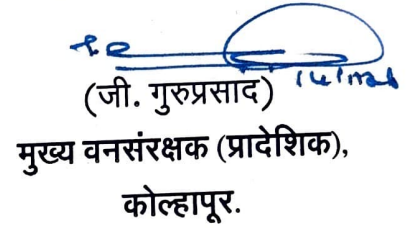 (जी. गुरुप्रसाद)
मुख्य वनसंरक्षक (प्रादेशिक),
कोल्हापूर.